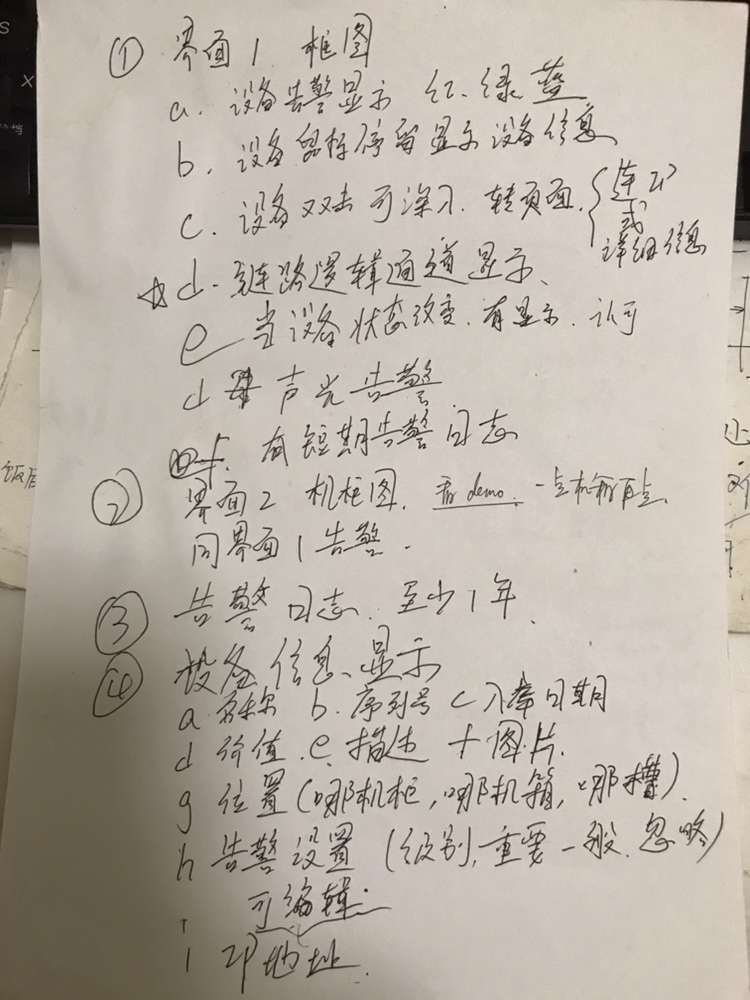 ① 界面1 框图
a. 设备告警显示 红、绿、蓝
b. 设备鼠标停留显示设备信息
c. 设备双击可深入. 转页面.
详细信息
☆ d. 链路逻辑通道显示、
e 当设备状态改变. 有显示. 认可
d 声光告警
f. 有短期告警日志
② 界面2 机框图. 看demo. 一点机箱再点.
同界面1告警.
③ 告警日志. 至少1年.
④ 设备信息、显示
a 名称 b. 序列号 c 入库日期
d 价值. e. 描述 + 图片.
g 位置(哪机柜,哪机箱,哪槽).
h 告警设置 (级别,重要一般.忽略)
可编辑.
i IP地址.